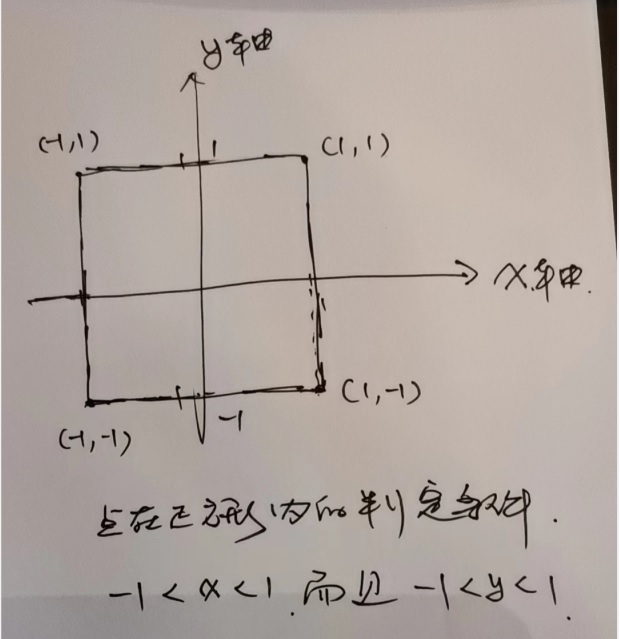 y轴
(-1,1)
1
(1,1)
x轴.
(1,-1)
-1
(-1,-1)
点在正方形内的判定条件.
-1<x<1.而且 -1<y<1.